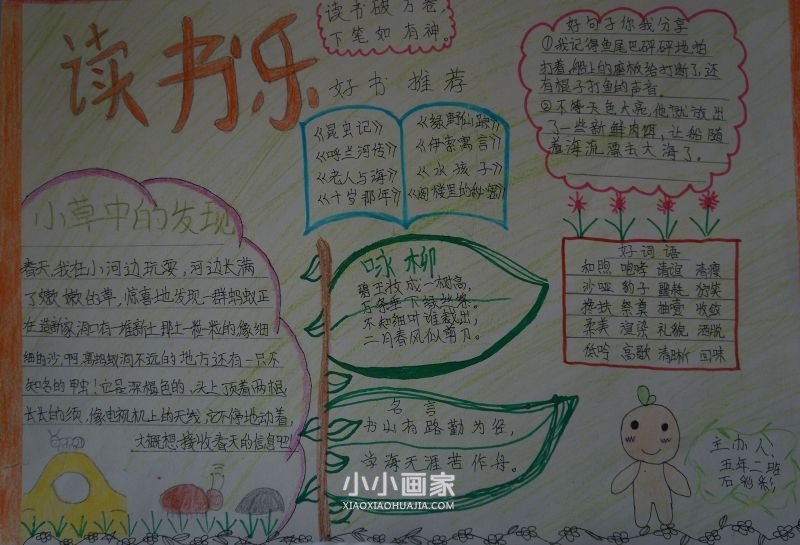 读书乐
读书破万卷，
下笔如有神。
好书推荐
《昆虫记》
《呼兰河传》
《老人与海》
《十岁那年》
《绿野仙踪》
《伊索寓言》
《水孩子》
《阁楼里的秘密》
好句子你我分享
①我记得鱼尾巴砰砰地拍
打着，船上的座板给打断了，还
有棍子打鱼的声音。
②不等天色大亮，他就放出
了一些新鲜肉饵，让船随
着海流漂去大海了。
小草中的发现
春天，我在小河边玩耍，河边长满
了嫩嫩的草，惊喜地发现一群蚂蚁正
在造新家，洞口有一堆新土，那土一粒一粒的像细
细的沙。啊，离蚂蚁洞不远的地方还有一只不
知名的甲虫！它是深褐色的，头上顶着两根
长长的须，像电视机上的天线，它不停地动着，
大概想接收春天的信息吧
咏柳
碧玉妆成一树高，
万条垂下绿丝绦。
不知细叶谁裁出，
二月春风似剪刀。
好词语
和煦 咆哮 清谊 清瘦
沙哑 豹子
搀扶 祭奠 抽噎 收敛
柔美 渲染 礼貌 洒脱
低吟 高歌 清晰 回味
名言
书山有路勤为径，
学海无涯苦作舟。
主办人：
五年二班
石彩彩
小小画家
XIAOXIAOHUAJIA.COM